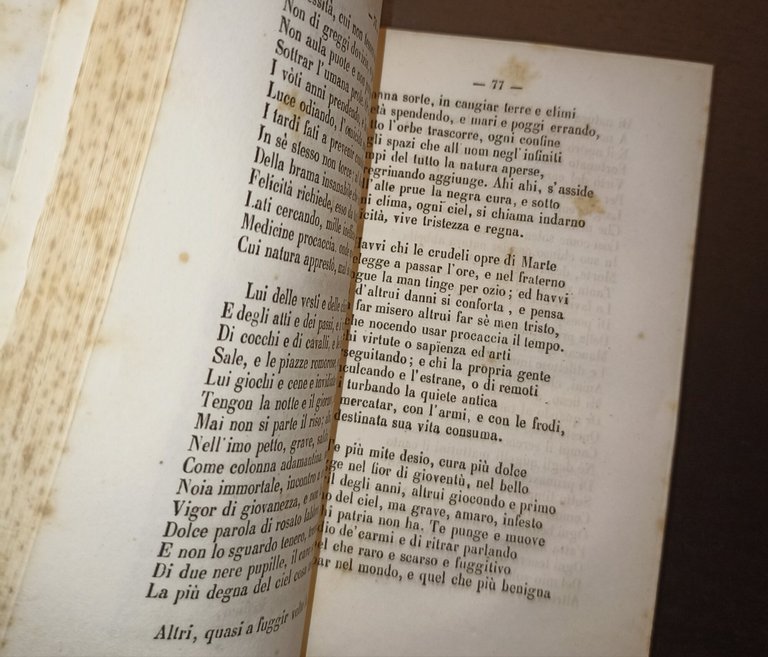 essità, cui non
Non di greggi dovizia,
Non aula puote e non
Sottrar l' umana prole.
I vòti anni prendendo,
Luce odiando, l'omicida
I tardi fati a prevenir
In sè stesso non torce:
Della brama insanabile che
Felicità richiede, esso da
Lati cercando, mille ineffic
Medicine procaccia, onde
Cui natura apprestò, mal
Lui delle vesti e delle
E degli atti e dei passi, e
Di cocchi e di cavalli, e
Sale, e le piazze romorose,
Lui giochi e cene e invidiate
Tengon la notte e il giorno
Mai non si parte il riso; ah
Nell'imo petto, grave, salda,
Come colonna adamantina,
Noia immortale, incontro a
Vigor di giovanezza, e non
Dolce parola di rosato labbro
E non lo sguardo tenero,
Di due nere pupille, il caro
La più degna del ciel cosa
Altri, quasi a fuggir volto
— 77 —
sorte, in cangiar terre e climi
età spendendo, e mari e poggi errando,
l'orbe trascorre, ogni confine
gli spazi che all uom negl' infiniti
mpi del tutto la natura aperse,
eregrinando aggiunge. Ahi ahi, s'asside
l'alte prue la negra cura, e sotto
ni clima, ogni ciel, si chiama indarno
icità, vive tristezza e regna.
Havvi chi le crudeli opre di Marte
elegge a passar l'ore, e nel fraterno
gue la man tinge per ozio; ed havvi
d'altrui danni si conforta , e pensa
far misero altrui far sè men tristo,
che nocendo usar procaccia il tempo.
hi virtute o sapienza ed arti
seguitando; e chi la propria gente
nculcando e l'estrane, o di remoti
turbando la quiete antica
mercatar, con l'armi, e con le frodi,
destinata sua vita consuma.
Te più mite desio, cura più dolce
gge nel fior di gioventù, nel bello
il degli anni, altrui giocondo e primo
no del ciel, ma grave, amaro, infesto
hi patria non ha. Te punge e muove
dio de'carmi e di ritrar parlando
el che raro e scarso e fuggitivo
par nel mondo, e quel che più benigna